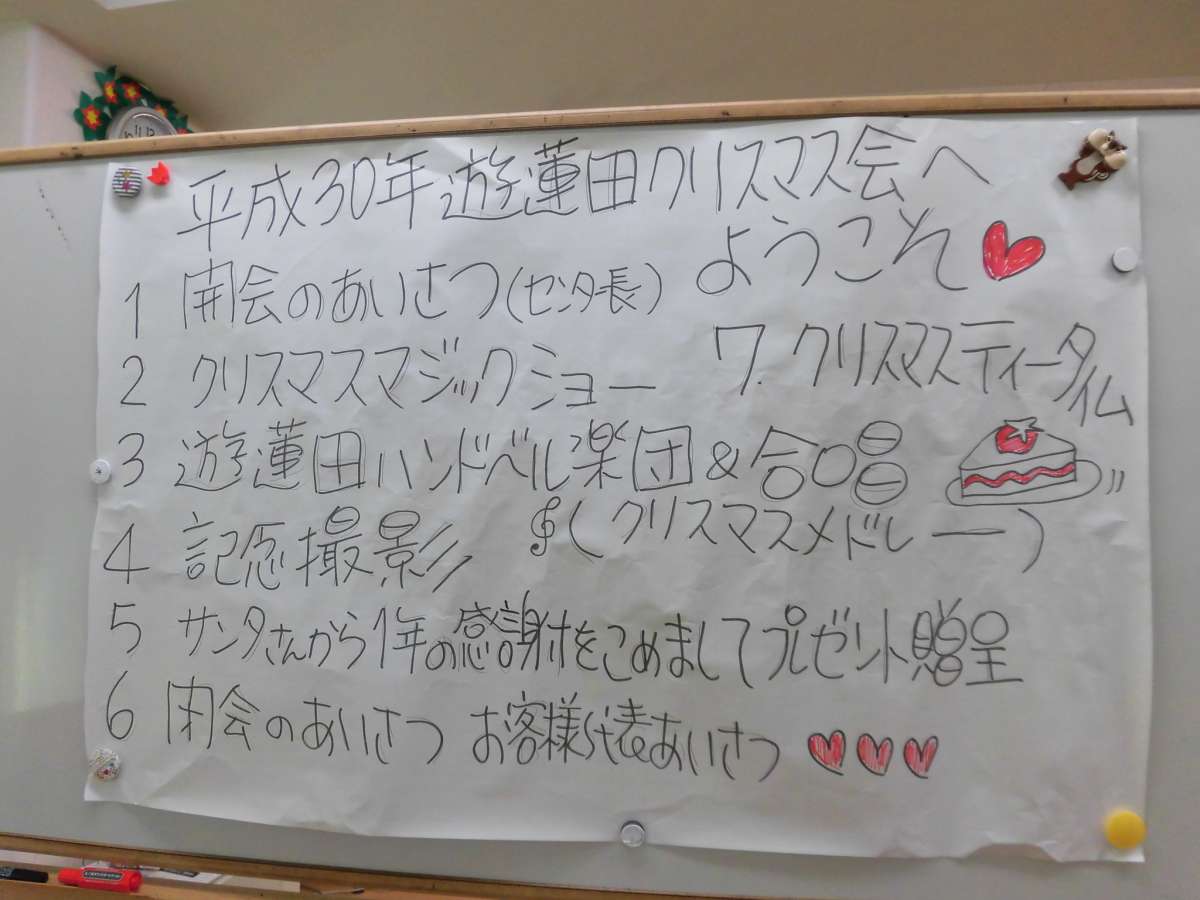 平成30年遊蓮田クリスマス会へ
ようこそ
1 開会のあいさつ(センター長)
2 クリスマスマジックショー
3 遊蓮田ハンドベル楽団&合唱
(クリスマスメドレー)
4 記念撮影
5 サンタさんから1年の感謝をこめましてプレゼント贈呈
6 閉会のあいさつ お客様代表あいさつ
7. クリスマスティータイム